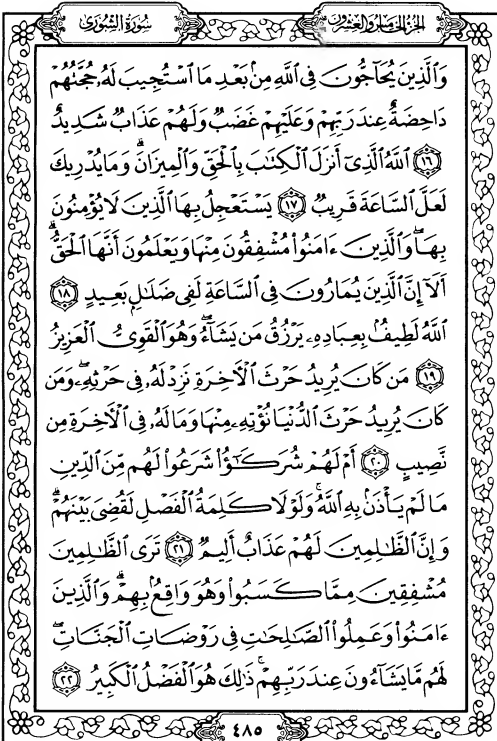 الجزء الخامس والعشرون
سورة الشورى
وَالَّذِينَ يُحَاجُّونَ فِى اللَّهِ مِنۢ بَعْدِ مَا ٱسْتُجِيبَ لَهُۥ حُجَّتُهُمْ
دَاحِضَةٌ عِندَ رَبِّهِمْ وَعَلَيْهِمْ غَضَبٌ وَلَهُمْ عَذَابٌ شَدِيدٌ
١٦ ٱللَّهُ ٱلَّذِىٓ أَنزَلَ ٱلْكِتَٰبَ بِٱلْحَقِّ وَٱلْمِيزَانَۗ وَمَا يُدْرِيكَ
لَعَلَّ ٱلسَّاعَةَ قَرِيبٌ ١٧ يَسْتَعْجِلُ بِهَا ٱلَّذِينَ لَا يُؤْمِنُونَ
بِهَاۖ وَٱلَّذِينَ ءَامَنُوا۟ مُشْفِقُونَ مِنْهَا وَيَعْلَمُونَ أَنَّهَا ٱلْحَقُّۗ
أَلَآ إِنَّ ٱلَّذِينَ يُمَارُونَ فِى ٱلسَّاعَةِ لَفِى ضَلَٰلٍۭ بَعِيدٍ ١٨
ٱللَّهُ لَطِيفٌۢ بِعِبَادِهِۦ يَرْزُقُ مَن يَشَآءُۖ وَهُوَ ٱلْقَوِىُّ ٱلْعَزِيزُ
١٩ مَن كَانَ يُرِيدُ حَرْثَ ٱلْءَاخِرَةِ نَزِدْ لَهُۥ فِى حَرْثِهِۦۖ وَمَن
كَانَ يُرِيدُ حَرْثَ ٱلدُّنْيَا نُؤْتِهِۦ مِنْهَا وَمَا لَهُۥ فِى ٱلْءَاخِرَةِ مِن
نَّصِيبٍ ٢٠ أَمْ لَهُمْ شُرَكَٰٓؤُا۟ شَرَعُوا۟ لَهُم مِّنَ ٱلدِّينِ
مَا لَمْ يَأْذَنۢ بِهِ ٱللَّهُۚ وَلَوْلَا كَلِمَةُ ٱلْفَصْلِ لَقُضِىَ بَيْنَهُمْۗ
وَإِنَّ ٱلظَّٰلِمِينَ لَهُمْ عَذَابٌ أَلِيمٌ ٢١ تَرَى ٱلظَّٰلِمِينَ
مُشْفِقِينَ مِمَّا كَسَبُوا۟ وَهُوَ وَاقِعٌۢ بِهِمْۗ وَٱلَّذِينَ
ءَامَنُوا۟ وَعَمِلُوا۟ ٱلصَّٰلِحَاتِ فِى رَوْضَاتِ ٱلْجَنَّاتِۖ
لَهُم مَّا يَشَآءُونَ عِندَ رَبِّهِمْۚ ذَٰلِكَ هُوَ ٱلْفَضْلُ ٱلْكَبِيرُ ٢٢
٤٨٥